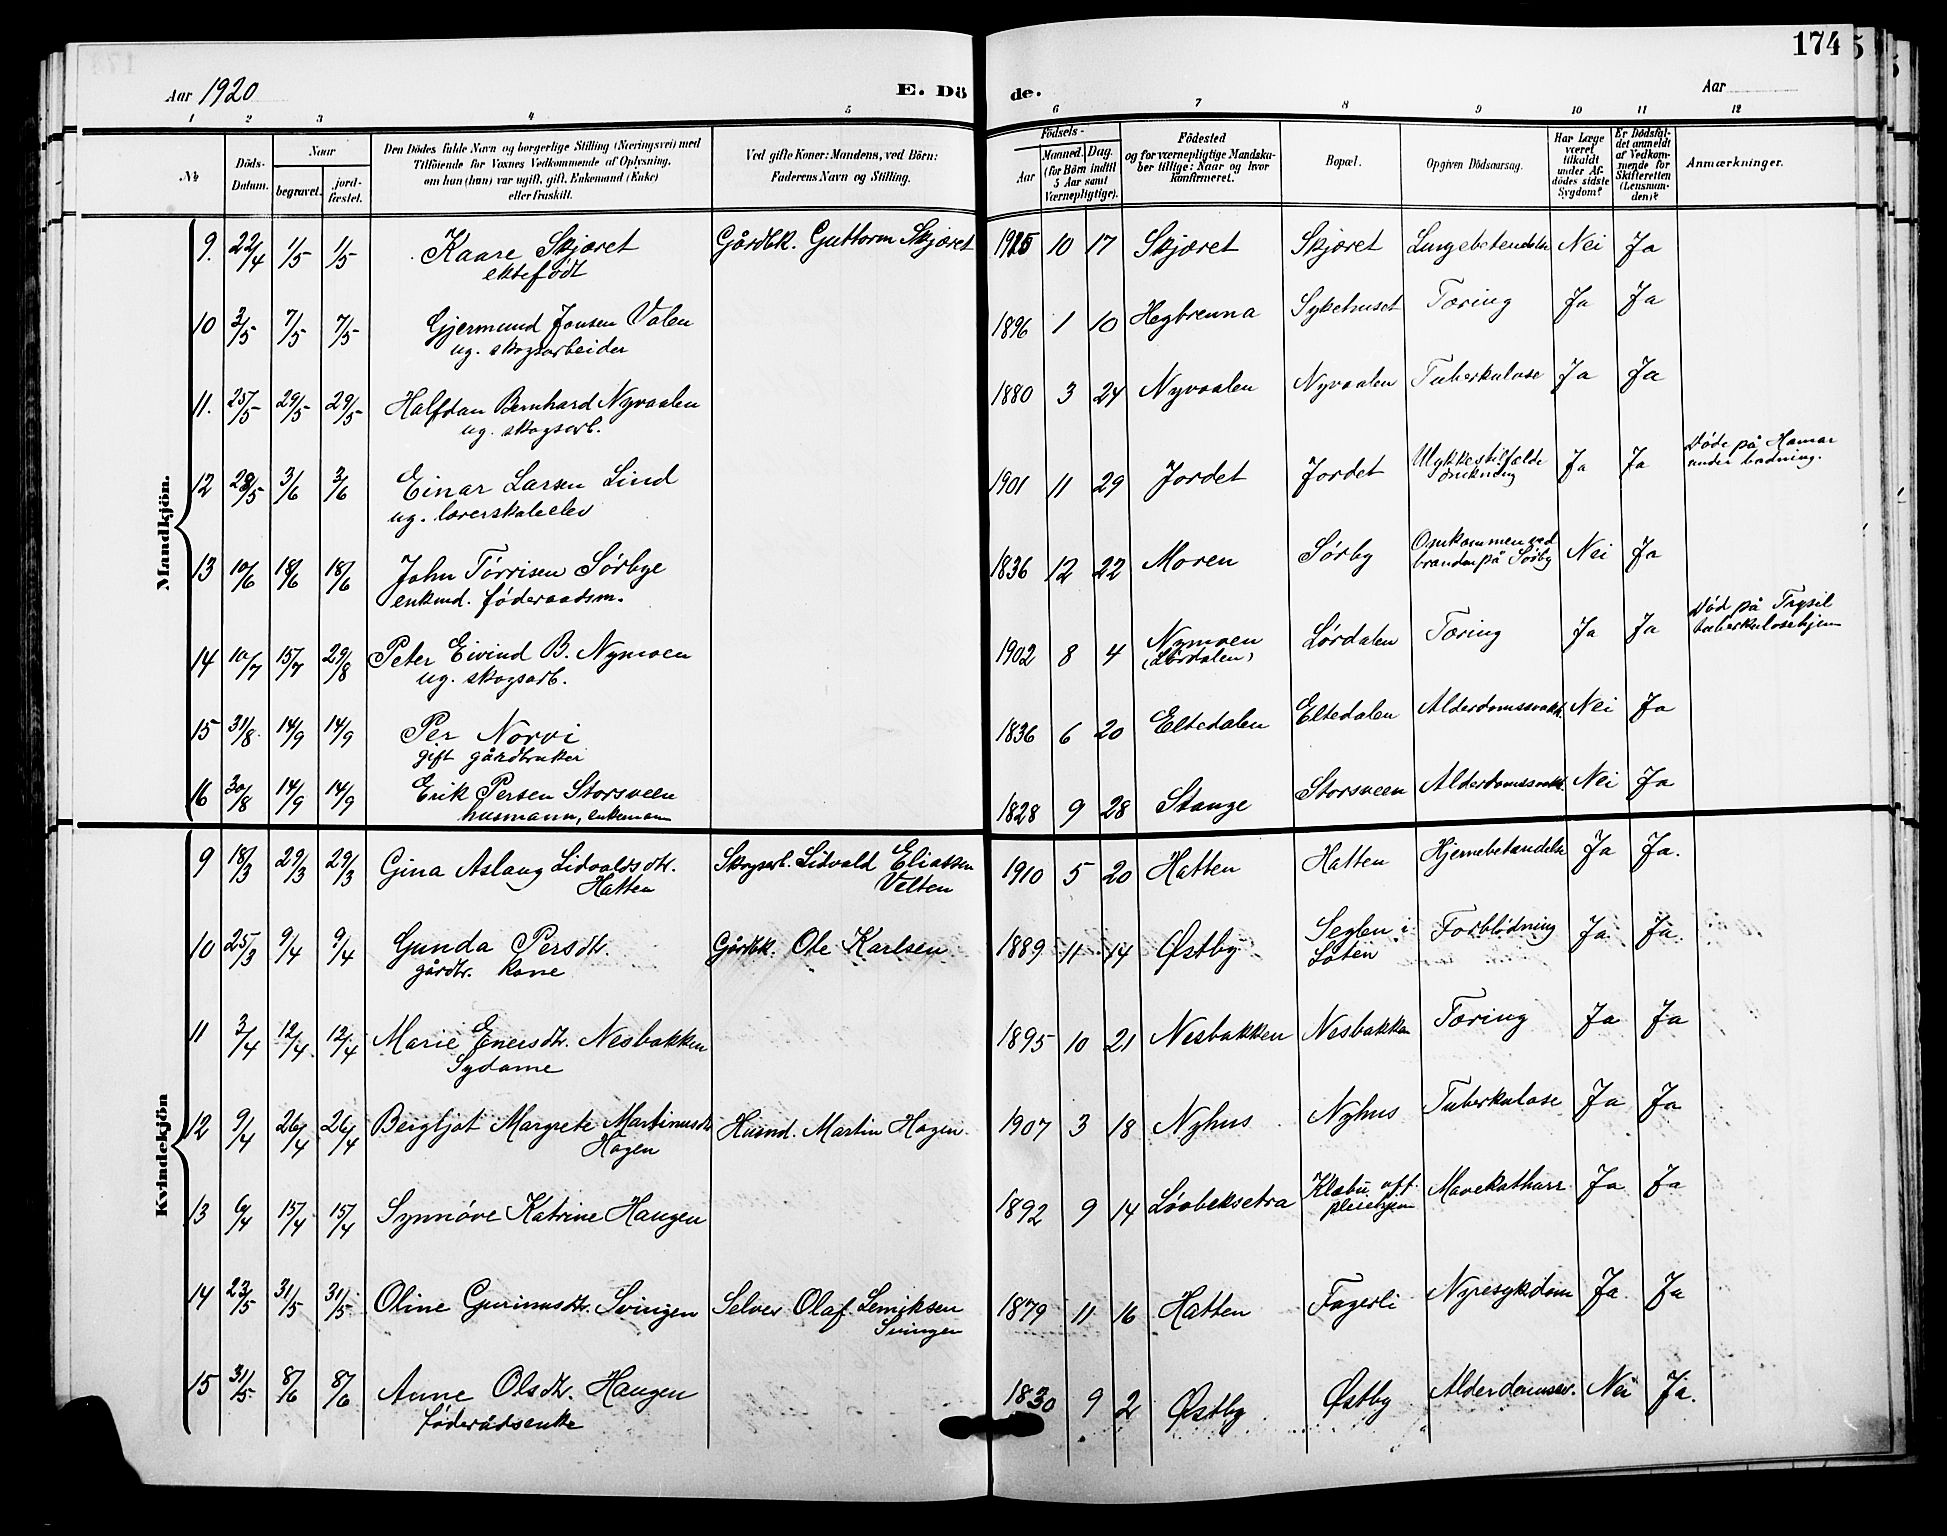 174
Aar 1920
E. Dö de.
Aar
1 2 3 4 5 6 7 8 9 10 11 12
№
Döds-Datum.
Naar
begravet.
jord-fæstet.
Den Dödes fulde Navn og borgerlige Stilling (Næringsvei) med
Tilföiende for Voxnes Vedkommende af Oplysning,
om han (hun) var ugift, gift, Enkemand (Enke)
eller fraskilt.
Ved gifte Koner: Mandens, ved Börn:
Faderens Navn og Stilling.
Födsels-
Aar
Maaned. Dag.
(for Börn indtil
5 Aar samt
Værnepligtige).
Födested
og for værnepligtige Mandskaber tillige: Naar og hvor
konfirmeret.
Bopæl.
Opgiven Dödsaarsag.
Har Læge
været
tilkaldt
under Afdödes sidste
Sygdom?
Er Dödsfaldet anmeldt
af Vedkommende for
Skifteretten
(Lensmanden)?
Anmærkninger.
Mandkjön.
9. 22/4 1/5 1/5 Kaare Skjæret Gårdbk. Guttorm Skjæret 1915 10 17 Skjæret Skjæret Lungebetendelse Nei Ja
ektefödt
10 3/5 7/5 7/5 Gjermund Jonsen Valen 1896 1 10 Hegbrenna Sykehuset Tæring Ja Ja
ug. skogsarbeider
11. 25/5 29/5 29/5 Halfdan Bernhard Nyvaalen 1880 3 24 Nyvaalen Nyvaalen Tuberkulose Ja Ja
ug. skogsarb.
12 28/5 3/6 3/6 Einar Larsen Lind 1901 11 29 Jordet Jordet Ulykkestilfælde Ja Ja Döde på Hamar
ug. lærerskoleelev Drukning under badning.
13 10/6 18/6 18/6 John Törrisen Sørbye 1836 12 22 Moren Sørby Omkommen ved Nei Ja
enkmd. föderaadsm. branden på Sørby
14 10/7 15/7 29/8 Peter Eivind B. Nymoen 1902 8 4 Nymoen Lørdalen Tæring Ja Ja Död på Trysil
ug. skogsarb. (Lørdalen) tuberkulosehjem
15 31/8 14/9 14/9 Per Norvi 1836 6 20 Eltedalen Eltedalen Alderdomssvakh. Nei Ja
gift gårdbruker
16 30/8 14/9 14/9 Erik Persen Storsveen 1828 9 28 Stange Storsveen Alderdomssvakh. Nei Ja
husmann, enkemann
Kvindekjön
9 18/3 29/3 29/3 Gina Aslaug Lidvaldsdtr. Skogsarb. Lidvald Eliassen 1910 5 20 Hatten Hatten Hjernebetændelse Ja Ja.
Hatten Velten
10 25/3 9/4 9/4 Gunda Persdtr. Gårdbk. Ole Karlsen 1889 11 14 Østby Seglen i Forblödning Ja Ja.
gårdbr. kone Løten
11 3/4 12/4 12/4 Marie Enersdtr. Nesbakken 1895 10 21 Nesbakken Nesbakken Tæring Ja Ja
Sydame
12 9/4 26/4 26/4 Bergljot Margrete Martinusdtr. Husmd. Martin Hagen. 1907 3 18 Nyhus Nyhus Tuberkulose Ja Ja
Hagen
13 6/4 15/4 15/4 Synnöve Katrine Haugen 1892 9 14 Løvbeksetra Klæbu Mavekatharr Ja Ja
pleiehjem
14 23/5 31/5 31/5 Oline Svingen Selver Olaf Svingen 1879 11 16 Hatten Fagerli Nyresykdom Ja Ja
15 31/5 8/6 8/6 Anne Olsdtr. Haugen 1830 9 2 Østby Østby Alderdomssv. Nei Ja.
föderådsenke